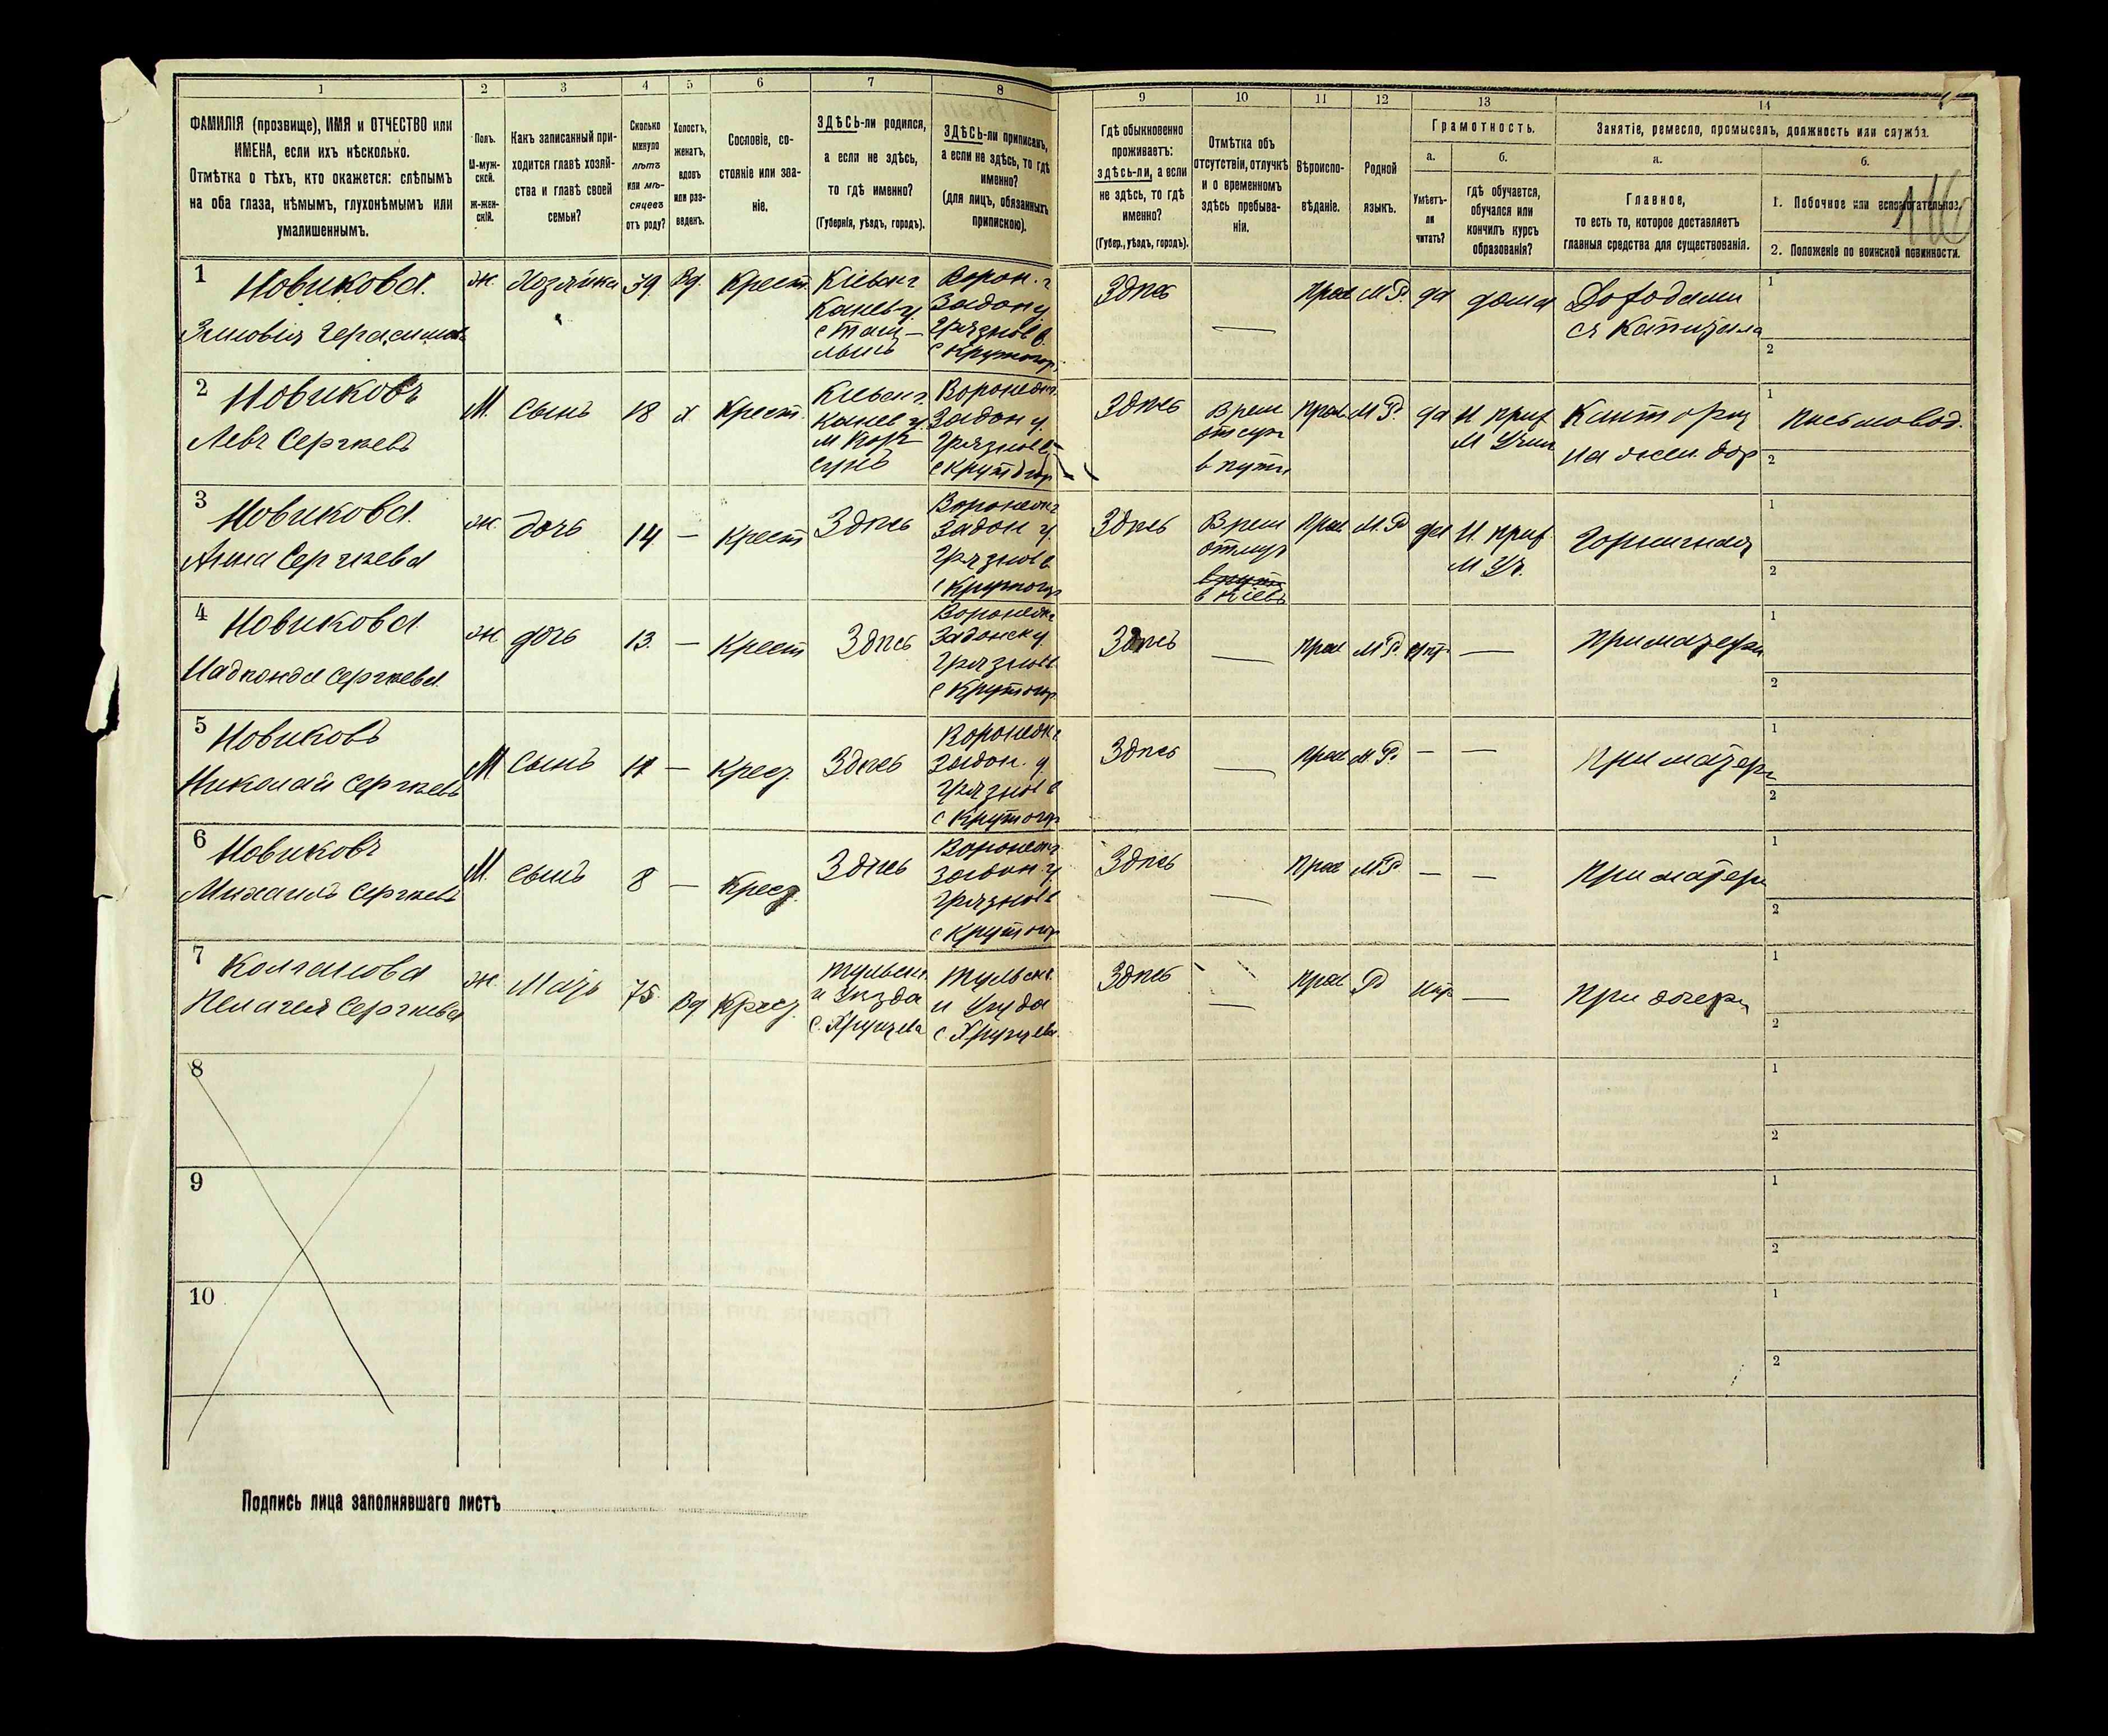 1
2
3
4
5
6
7
8
9
10
11
12
13
14
ФАМИЛІЯ (прозвище), ИМЯ и ОТЧЕСТВО или
ИМЕНА, если ихъ нѣсколько.
Отмѣтка о тѣхъ, кто окажется: слѣпымъ
на оба глаза, нѣмымъ, глухонѣмымъ или
умалишеннымъ.
Полъ.
М-муж-
ской.
Ж-жен-
скій.
Какъ записанный при-
ходится главѣ хозяй-
ства и главѣ своей
семьи?
Сколько
минуло
лѣтъ
или мѣ-
сяцевъ
отъ роду?
Холостъ,
женатъ,
вдовъ
или раз-
веденъ.
Сословіе, со-
стояніе или зва-
ніе.
ЗДѢСЬ-ли родился,
а если не здѣсь,
то гдѣ именно?
(Губернія, уѣздъ, городъ).
ЗДѢСЬ-ли приписанъ,
а если не здѣсь, то гдѣ
именно?
(для лицъ, обязанныхъ
припискою).
Гдѣ обыкновенно
проживаетъ:
здѣсь-ли, а если
не здѣсь, то гдѣ
именно?
(Губер., уѣздъ, городъ).
Отмѣтка объ
отсутствіи, отлучкѣ
и о временномъ
здѣсь пребыва-
ніи.
Вѣроиспо-
вѣданіе.
Родной
языкъ.
Грамотность.
а.
Умѣетъ-
ли
читать?
б.
гдѣ обучается,
обучался или
кончилъ курсъ
образованія?
Занятіе, ремесло, промыселъ, должность или служба.
а.
Главное,
то есть то, которое доставляетъ
главныя средства для существованія.
б.
1. Побочное или вспомогательное.
2. Положеніе по воинской повинности.
116
1
Новикова.
Зиновія Герасимов
ж.
Хозяйка
39
Вд.
Крест.
Кіевск г
Канев у.
с
Ворон. г
Задон у
Грязнов в.
с Крутогор
Здѣсь
—
Прав
М Р.
да
дома
Доходами
съ Капитала
1
2
2
Новиковъ
Левъ Сергѣевъ
М.
Сынъ
18
х.
Крест.
Кіевск г.
Канев у.
м Кор
сунь
Воронеж г.
Задон у.
Грязнов в
с Крутогор
Здѣсь
Врем
отсут
в пути
Прав.
М Р.
да
М Учил
Контора
на жел. дор
1
Письмовод.
2
3
Новикова.
Анна Сергѣева
ж.
дочь
14
—
Крест
Здѣсь
Воронеж г
Задон у.
Грязнов в.
с Крутогор
Здѣсь
Врем
отлуч
в пути
в Кіевъ
Прав
М. Р
да
М Уч.
Горничная
1
2
4
Новикова
Надѣжда Сергѣева.
ж
дочь
13.
—
Крест
Здѣсь
Воронеж г
Задонск у
Грязнов в.
с Крутогор
Здѣсь
—
Прав
М Р.
нѣт
—
При матери
1
2
5
Новиковъ
Николай Сергѣевъ
М
Сынъ
11
—
Крест.
Здѣсь
Воронеж г.
Задон. у
Грязнов в
с Крутогор
Здѣсь
—
Прав
М. Р.
—
—
При матери
1
2
6
Новиковъ
Михаилъ Сергѣевъ
М.
сынъ
8
—
Крест.
Здѣсь
Воронеж г.
Задон у
Грязнов в
с Крутогор
Здѣсь
—
Прав
М Р
—
—
При матери
1
2
7
Колганова
Пелагея Сергѣева
ж.
Мать
75.
Вд
Крест.
Тульск г.
и Уѣзда
с. Хрущева
Тульск г.
и Уѣзда
с Хрущева.
Здѣсь
—
Прав
Р
нѣт
—
При дочери
1
2
8
1
2
9
1
2
10
1
2
Подпись лица заполнявшаго листъ